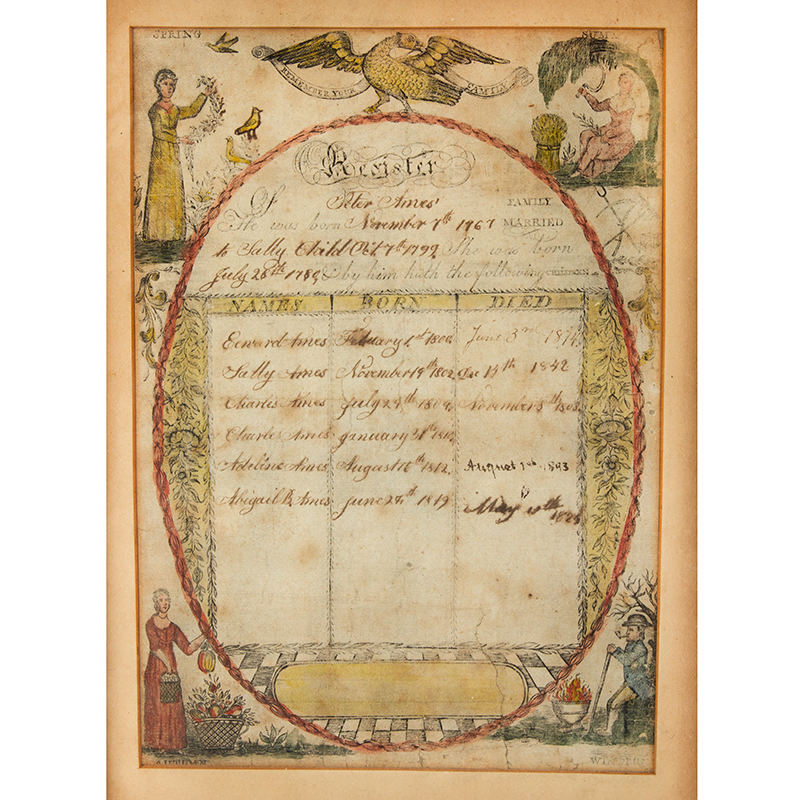 SPRING
REMEMBER YOUR FAMILY
Register
Of Peter Ames' FAMILY
He was born November 7th 1767 MARRIED
to Sally Child Oct. 7th 1799. She was born
July 28th 1780, & by him hath the following CHILDREN
NAMES BORN DIED
Edward Ames February 1st 1800. June 3rd 1874
Sally Ames November 19th 1802. Dec 14th 1842
Charles Ames July 29th November 5th 1808.
Charles Ames January 31st
Adeline Ames August 1812. August 1893
Abigail B. Ames June 28th 1819 May